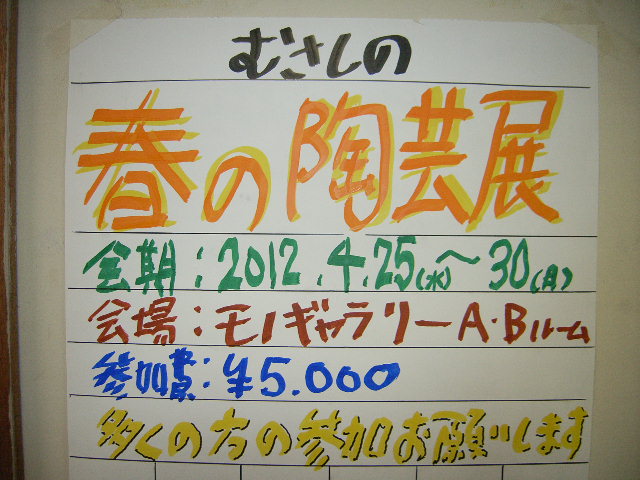 むさしの
春の陶芸展
会期:2012.4.25(水)〜30(月)
会場:モノギャラリーA・Bルーム
参加費:¥5.000
多くの方の参加お願いします